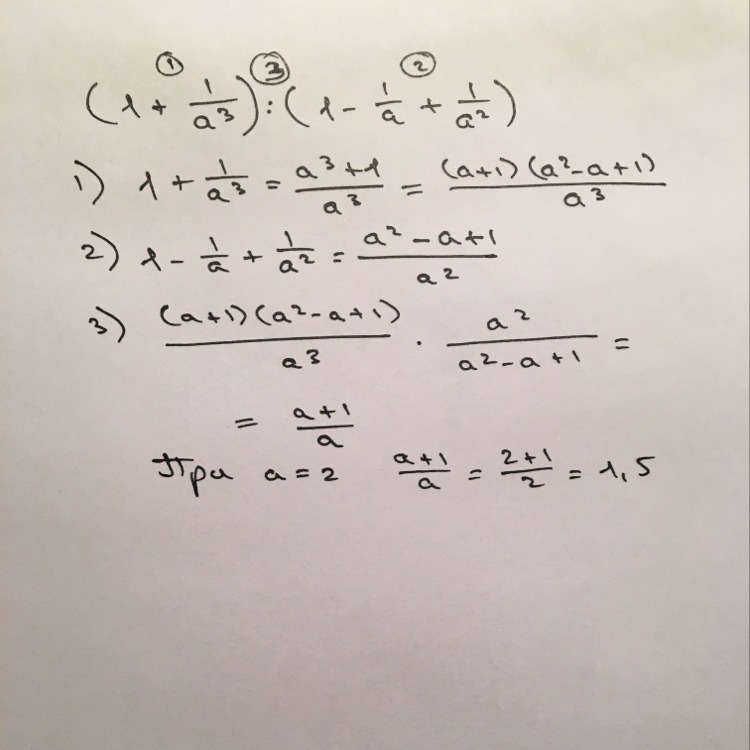 ① ③ ②
(1 + 1/a³) : (1 - 1/a + 1/a²)
1) 1 + 1/a³ = (a³+1)/a³ = (a+1)(a²-a+1)/a³
2) 1 - 1/a + 1/a² = (a²-a+1)/a²
3) (a+1)(a²-a+1)/a³ · a²/(a²-a+1) =
= (a+1)/a
При a=2 (a+1)/a = (2+1)/2 = 1,5